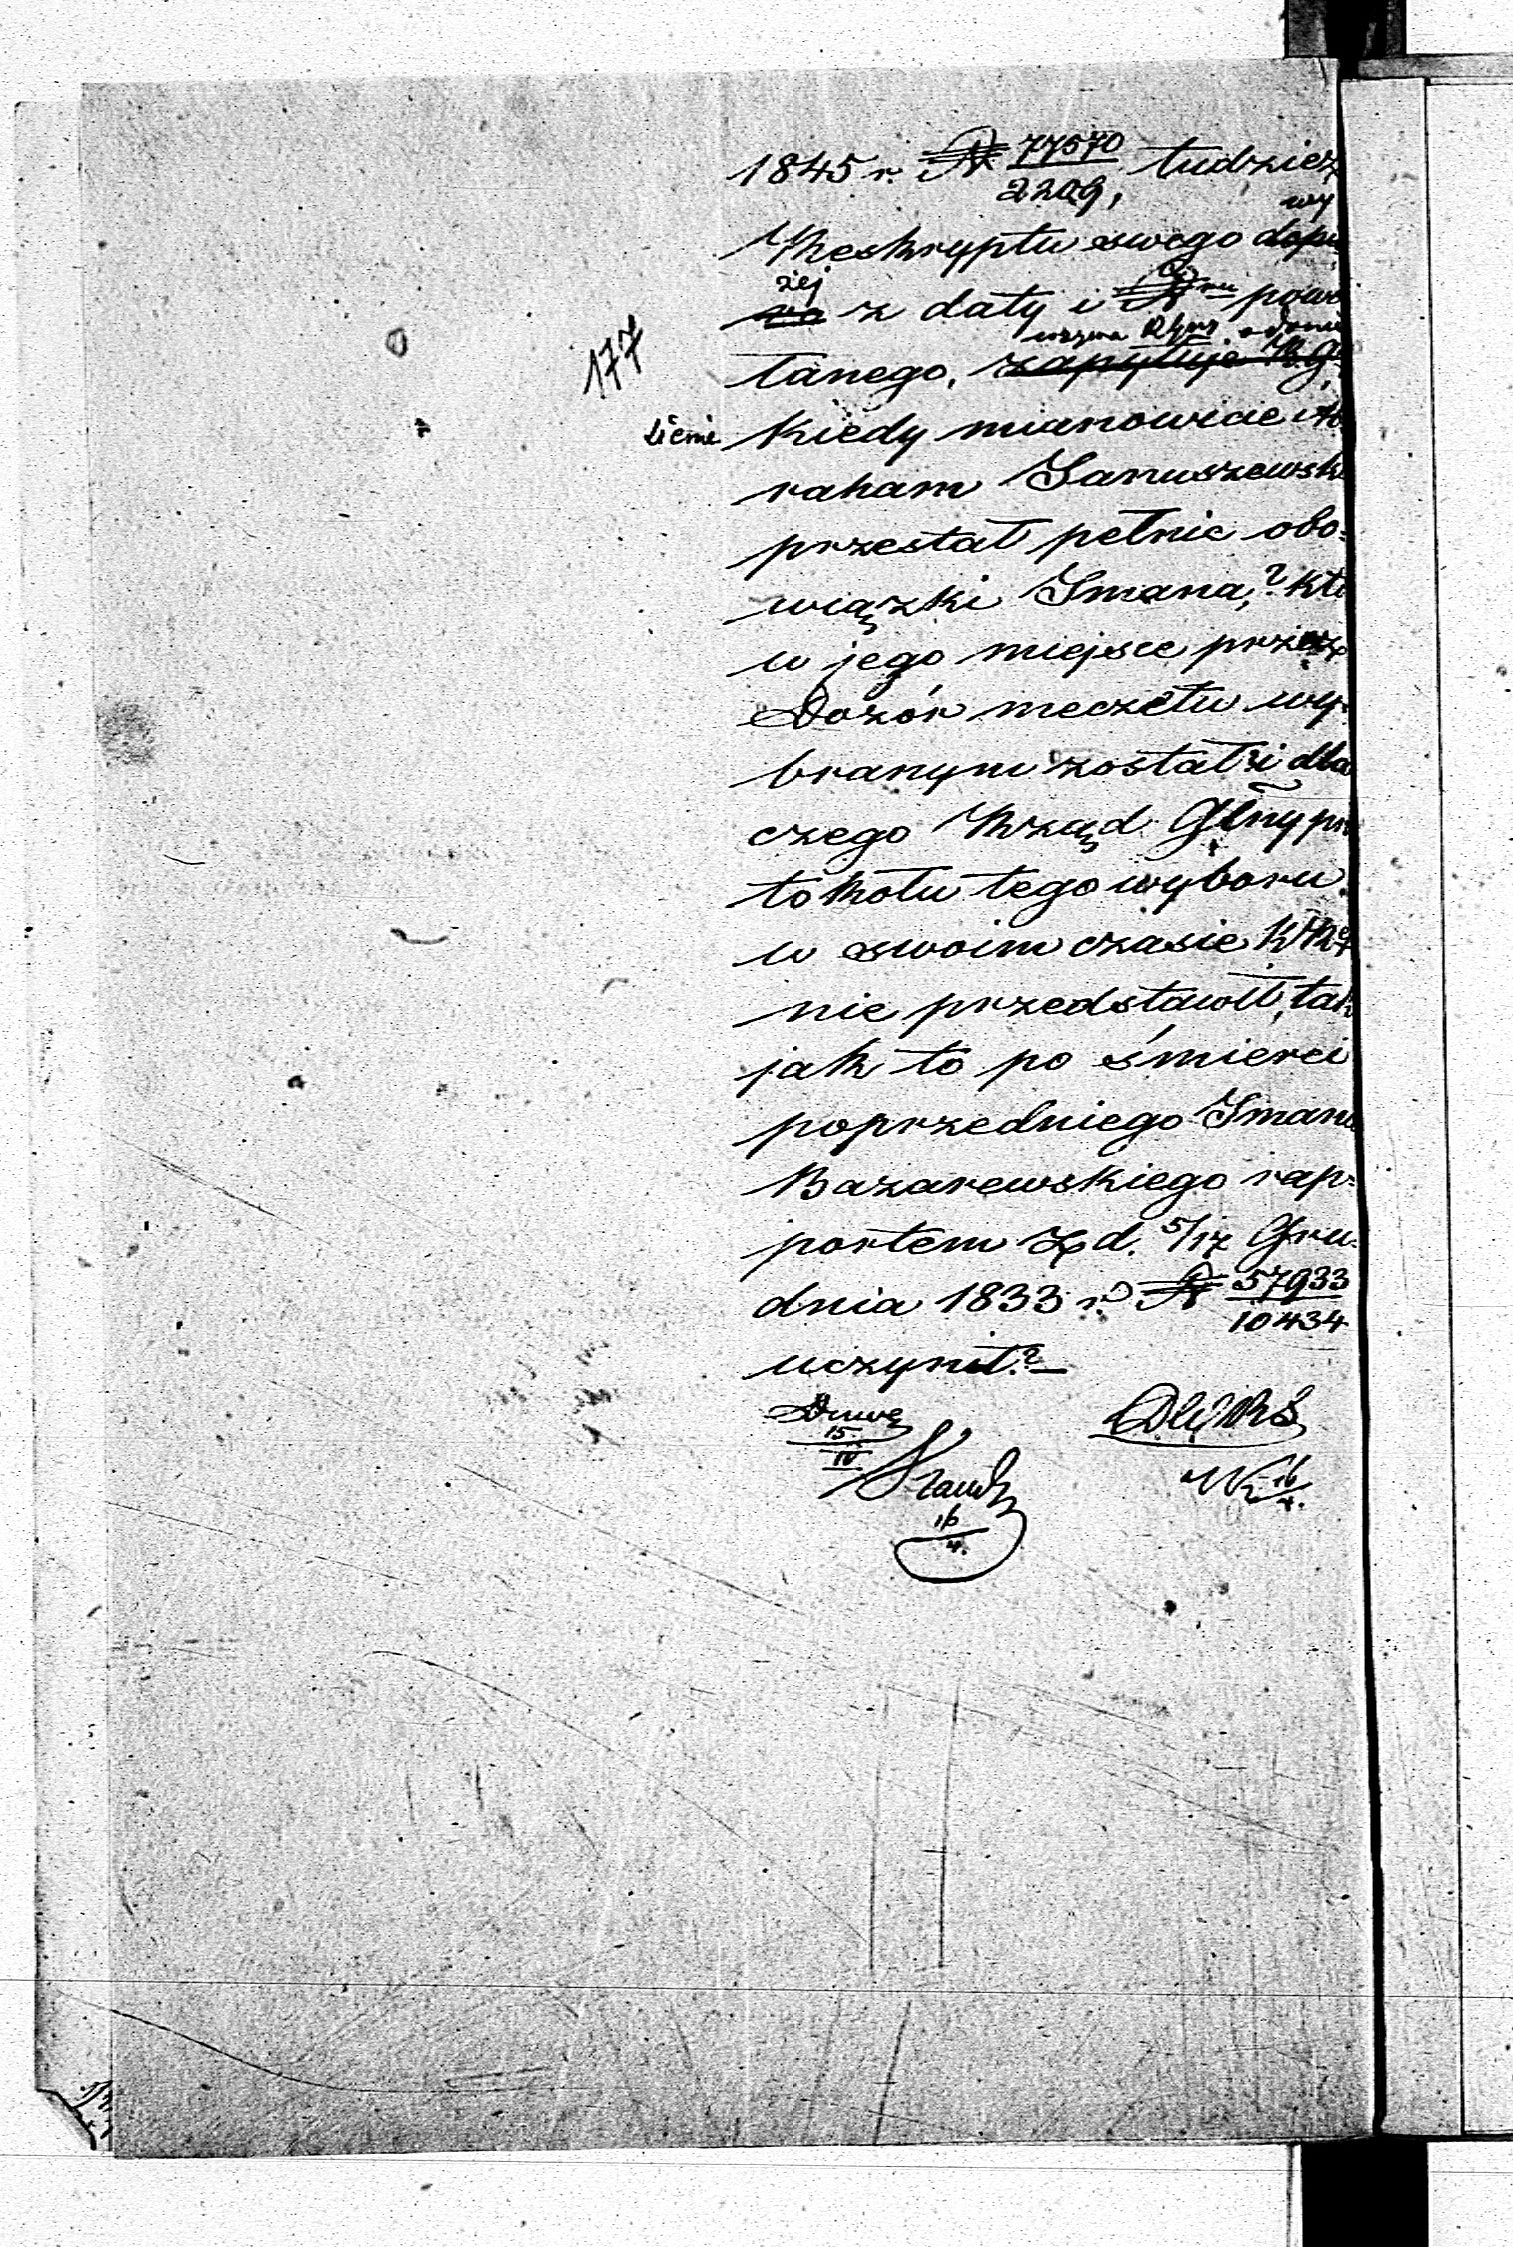 1845 r. № 77570/2209, tudzież
wy
Reskryptu swego dopie
żej
ro z daty i №ru powo
wzywa o doni
łanego, zapytuje R. G.
177
sienie kiedy mianowicie Ab
raham Januszewski
przestał pełnić obo=
wiązki Imana,? kto
w jego miejsce przez
Dozór meczetu wy=
branym został? i dla
czego Rząd Glny pro
tokołu tego wyboru
w swoim czasie KR
nie przedstawił, tak
jak to po śmierci
poprzedniego Imana
Bazarewskiego rap=
portem z d. 5/17 Gru=
dnia 1833 r. № 57933/10434
uczynił?—
15/IV
16/4.
16/4.